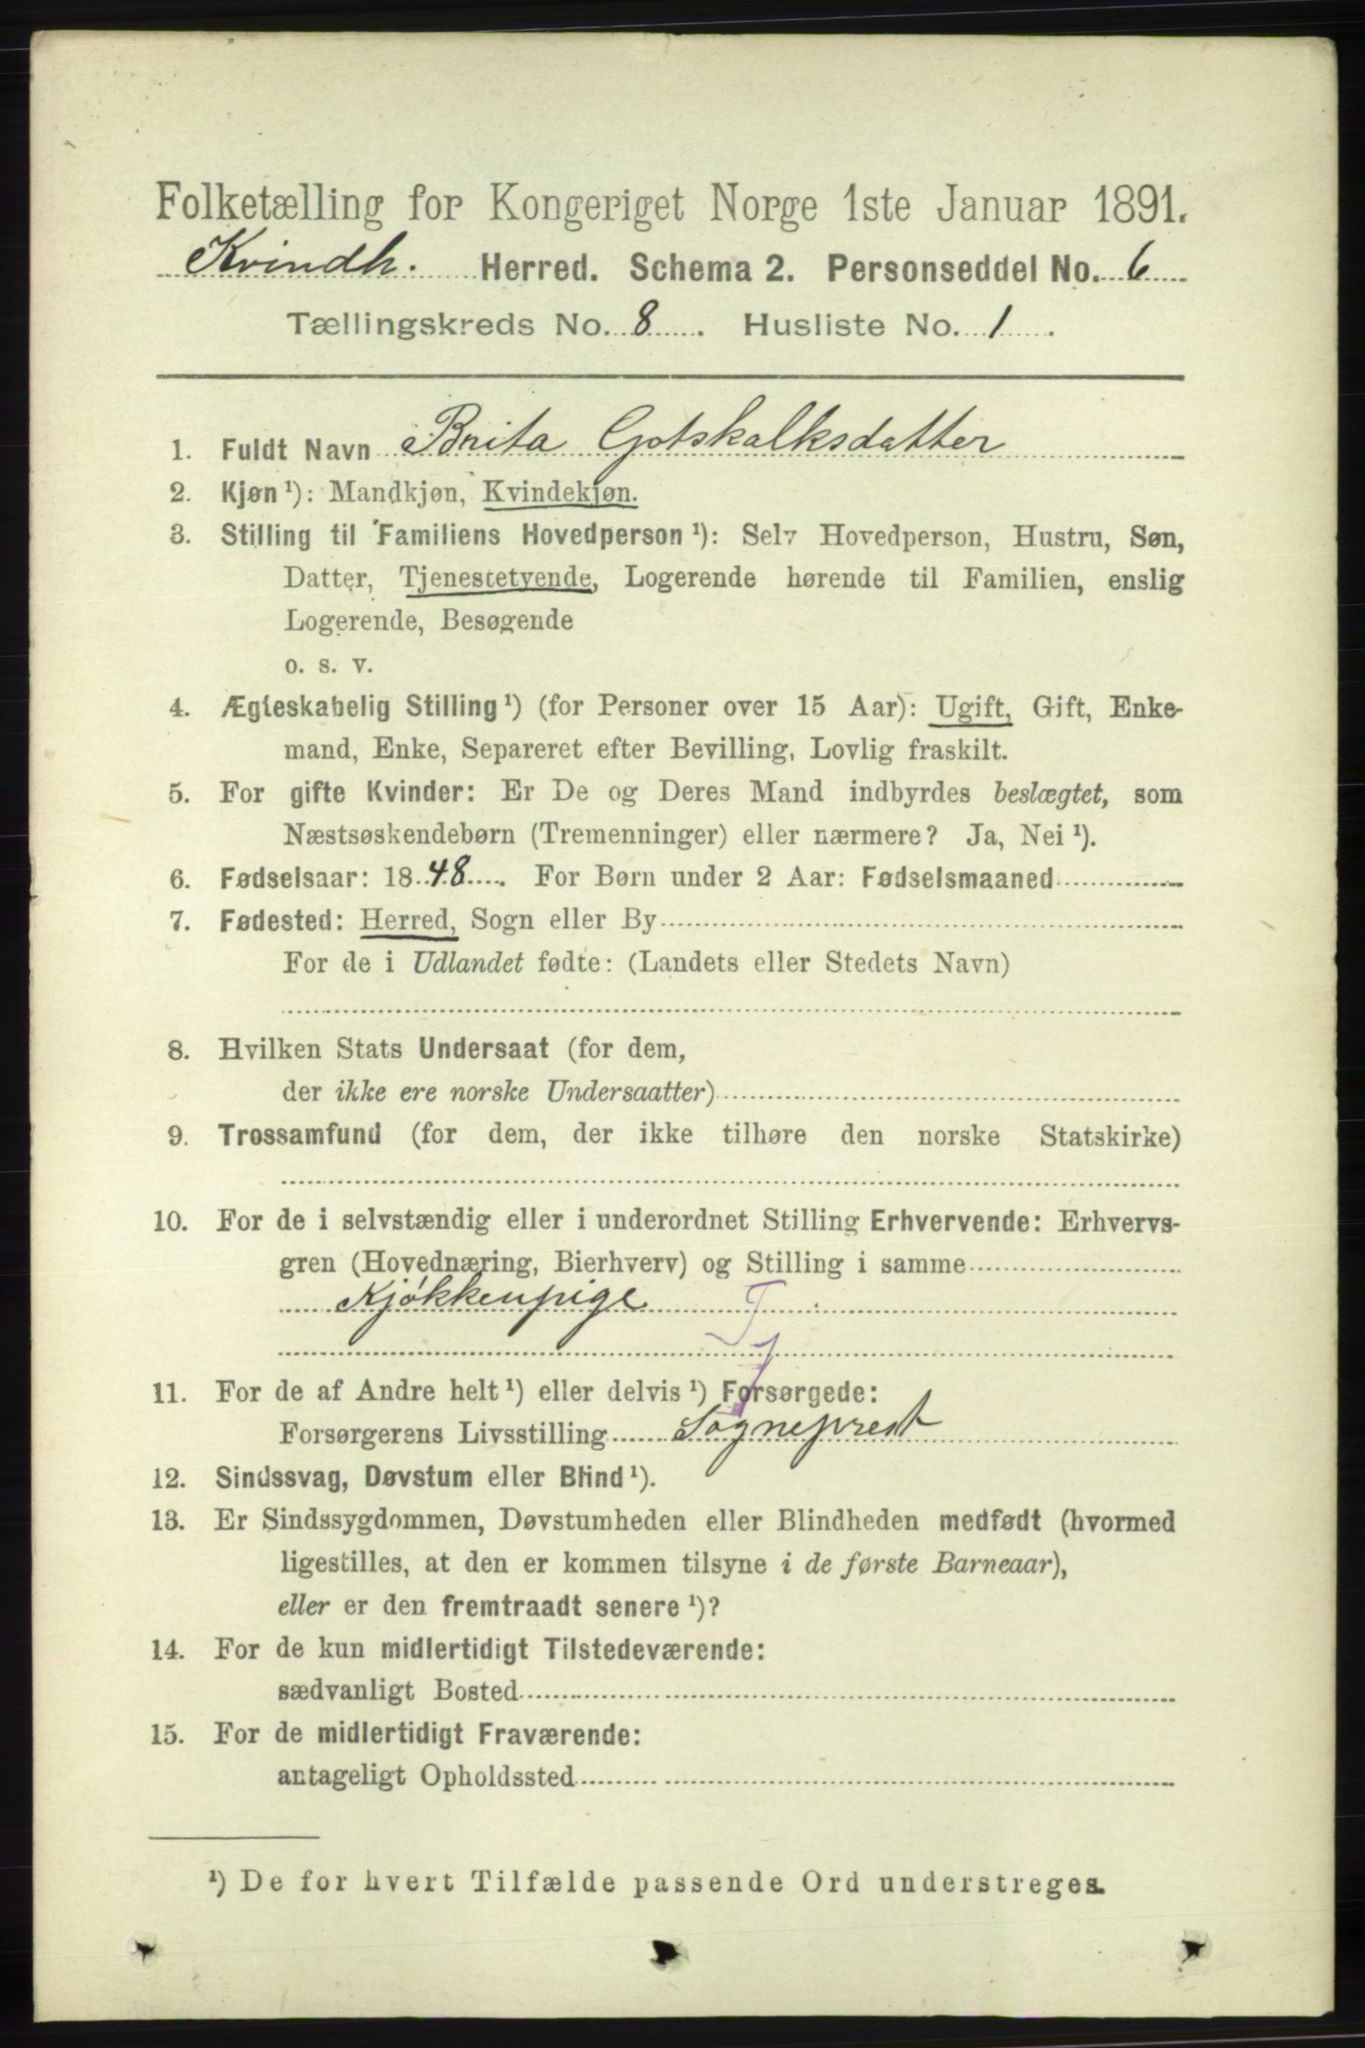 Folketælling for Kongeriget Norge 1ste Januar 1891.
Kvindh. Herred. Schema 2. Personseddel No. 6
Tællingskreds No. 8. Husliste No. 1.
1. Fuldt Navn Brita Gotskalksdatter
2. Kjøn ¹): Mandkjøn, Kvindekjøn.
3. Stilling til Familiens Hovedperson ¹): Selv Hovedperson, Hustru, Søn,
Datter, Tjenestetyende, Logerende hørende til Familien, enslig
Logerende, Besøgende
o. s. v.
4. Ægteskabelig Stilling ¹) (for Personer over 15 Aar): Ugift, Gift, Enke-
mand, Enke, Separeret efter Bevilling, Lovlig fraskilt.
5. For gifte Kvinder: Er De og Deres Mand indbyrdes beslægtet, som
Næstsøskendebørn (Tremenninger) eller nærmere? Ja, Nei ¹).
6. Fødselsaar: 1848. For Børn under 2 Aar: Fødselsmaaned
7. Fødested: Herred, Sogn eller By
For de i Udlandet fødte: (Landets eller Stedets Navn)
8. Hvilken Stats Undersaat (for dem,
der ikke ere norske Undersaatter)
9. Trossamfund (for dem, der ikke tilhøre den norske Statskirke)
10. For de i selvstændig eller i underordnet Stilling Erhvervende: Erhvervs-
gren (Hovednæring, Bierhverv) og Stilling i samme
Kjøkkenpige T
11. For de af Andre helt ¹) eller delvis ¹) Forsørgede:
Forsørgerens Livsstilling Sogneprest
12. Sindssvag, Døvstum eller Blind ¹).
13. Er Sindssygdommen, Døvstumheden eller Blindheden medfødt (hvormed
ligestilles, at den er kommen tilsyne i de første Barneaar),
eller er den fremtraadt senere ¹)?
14. For de kun midlertidigt Tilstedeværende:
sædvanligt Bosted
15. For de midlertidigt Fraværende:
antageligt Opholdssted
¹) De for hvert Tilfælde passende Ord understreges.